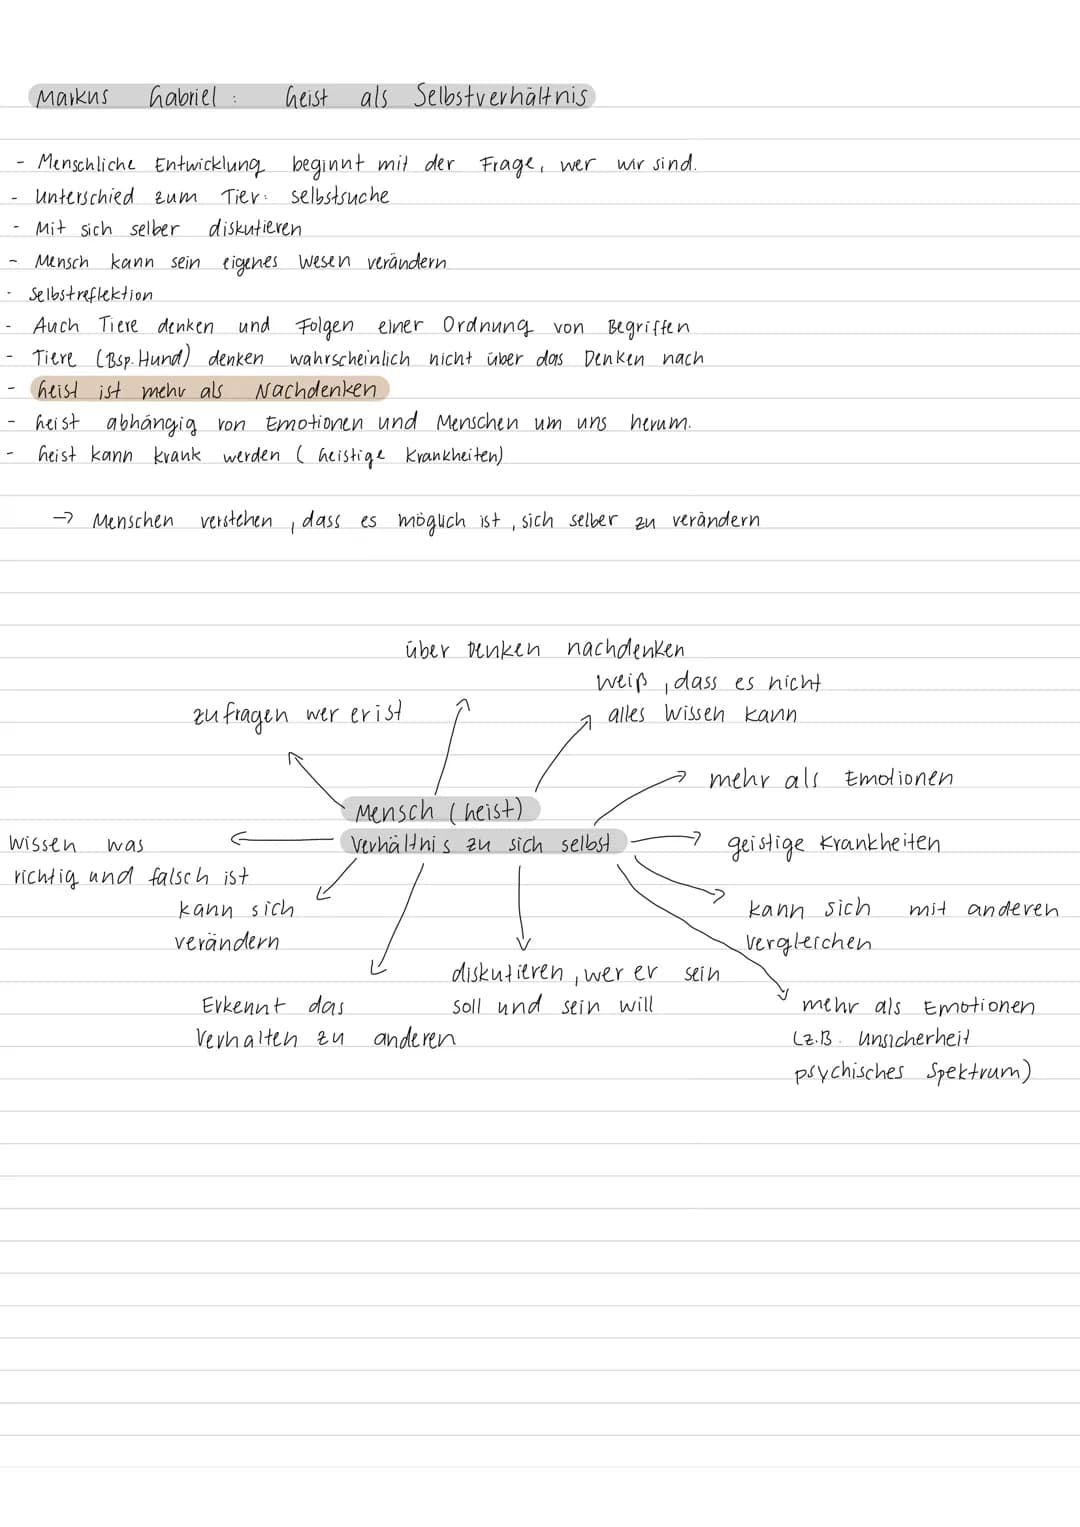 Markus Gabriel : Geist als Selbstverhältnis
- Menschliche Entwicklung beginnt mit der Frage, wer wir sind.
- Unterschied zum Tier: selbstsuche
- Mit sich selber diskutieren
- Mensch kann sein eigenes Wesen verändern
- Selbstreflektion
- Auch Tiere denken und Folgen einer Ordnung von Begriffen
- Tiere (Bsp. Hund) denken wahrscheinlich nicht über das Denken nach
- Geist ist mehr als Nachdenken
- Geist abhängig von Emotionen und Menschen um uns herum.
- Geist kann krank werden ( Geistige Krankheiten)
→ Menschen verstehen , dass es möglich ist , sich selber zu verändern
über Denken nachdenken
weiß , dass es nicht
alles Wissen kann
zu fragen wer er ist
mehr als Emotionen
Mensch (Geist)
Verhältnis zu sich selbst
geistige Krankheiten
wissen was
richtig und falsch ist
kann sich
verändern
kann sich mit anderen
vergleichen
diskutieren , wer er sein
soll und sein will
Erkennt das
Verhalten zu anderen
mehr als Emotionen
(z.B. Unsicherheit
psychisches Spektrum)